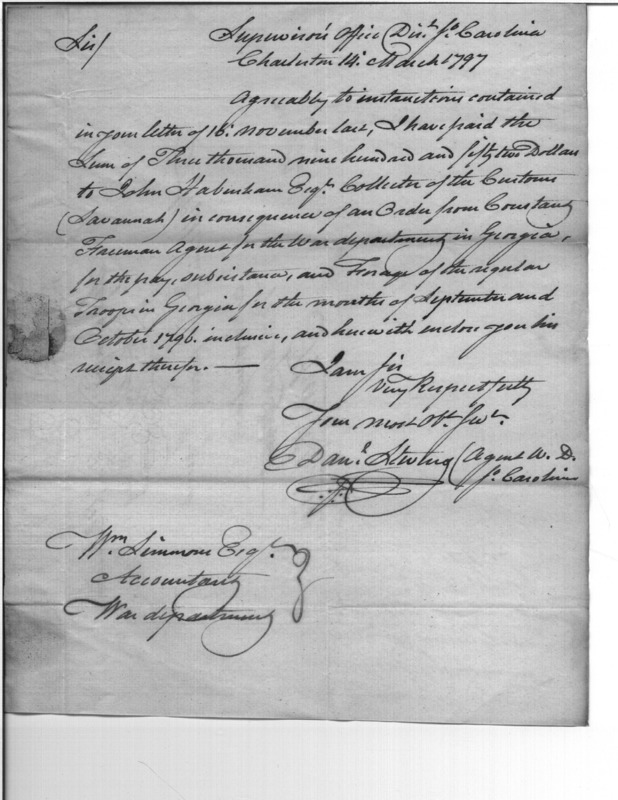 Supervisor's Office Dist. So. Carolina
Sir/ Charleston 14. March 1797
Agreeably to instructions contained
in your letter of 16. November last, I have paid the
Sum of Three thousand nine hundred and fifty two Dollars
to John Habersham Esqr. Collector of the Customs
(Savannah) in consequence of an Order from Constant
Freeman Agent for the War department in Georgia,
for the pay, subsistance, and Forage of the regular
Troops in Georgia for the months of September and
October 1796. inclusive, and herewith enclose you his
receipt therefor. —
I am Sir
Very Respectfully
Your most Obt. Svt.
Danl. Stevens (Agent W. D.
So. Carolina
Wm. Simmons Esqr.
Accountant
War department